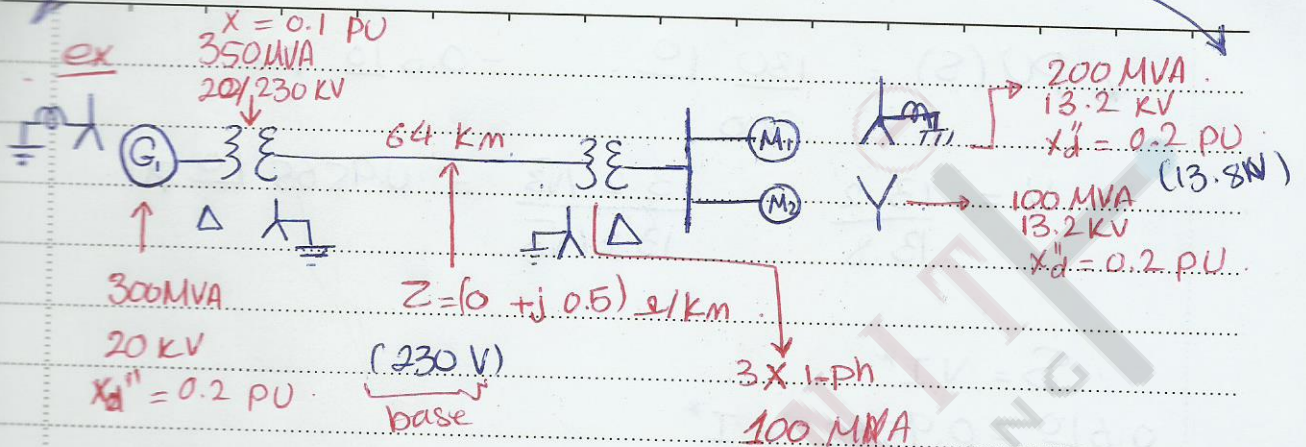 ex
X = 0.1 PU
350MVA
20/230 KV
64 Km
G1
Δ
Δ
M1
M2
200 MVA.
13.2 KV
Xd" = 0.2 PU
(13.8KV)
100 MVA
13.2 KV
Xd" = 0.2 PU.
300MVA
20 KV
Xd" = 0.2 PU.
Z=(0 +j 0.5) Ω/Km.
(230 V)
base
3X 1-ph
100 MVA